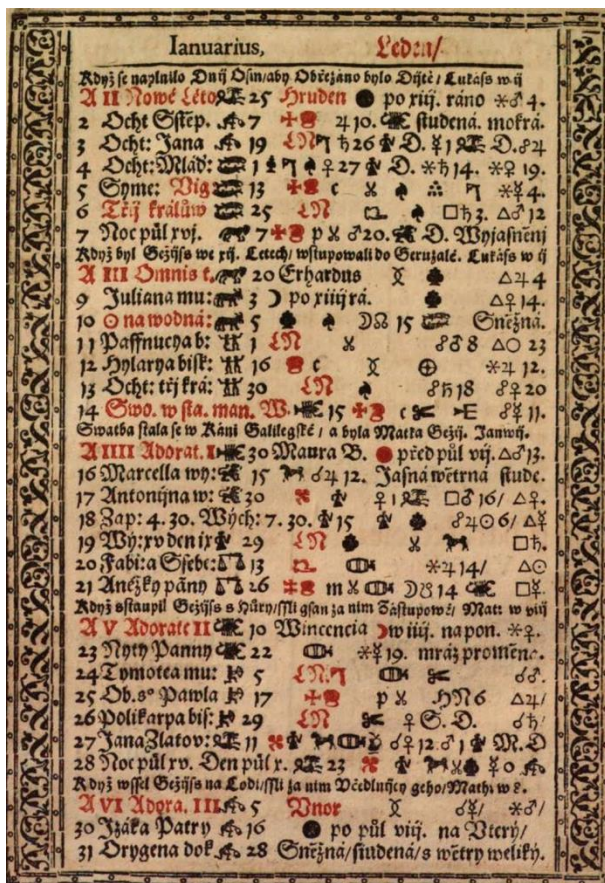 Ianuarius, Leden/
Když se naplnilo Dnij Osm/aby Obřezáno bylo Dijtě/ Lukáss w ij
A II Nowé Léto 25 Hruden po xiij. ráno ⚹♂ 4.
2 Ocht Sstěp. 7 ♃ 10. studená. mokrá.
3 Ocht: Jana 19 LN ♄ 26 D. ☿ 1 D. ☍♃
4 Ocht: Mlád: 1 ♀ 27 D. ⚹♄ 14. ⚹♀ 19.
5 Syme: Vig 13 c ⚹☿ 4.
6 Třij králůw 25 LN □♄ 3. △♂ 12
7 Noc půl xvj. 7 p ♂ 20. D. Wyjasněnj
Když byl Gežijss we xij. Letech/ wstupowali do Geruzalé. Lukáss w ij
A III Omnis t. 20 Erhardus △♃ 4
9 Juliana mu: 3 ☽ po xiiij rá. △♀ 14.
10 ☉ na wodná: 5 ☽☊ 15 Sněžná.
11 Paffnucya b: 1 LN ☍♂ 8 △☉ 23
12 Hylarya bisk: 16 c ⚹♃ 12.
13 Ocht: třj krá: 30 LN ☍♄ 18 ☍♀ 20
14 Swo. w sta. man. W. 15 c ☍☿ 11.
Swatba stala se w Káni Galilegské / a byla Matka Gežij. Janwij.
A IIII Adorat. I 30 Maura B. před půl vij. △♂ 13.
16 Marcella wy: 15 ☍♃ 12. Jasná wětrná stude.
17 Antonijna w: 30 ♀ 1 □♂ 16/ △♀.
18 Zap: 4. 30. Wých: 7. 30. 15 ☍♃☉ 6/ △☿
19 Wý: xv den ix 29 LN □♄.
20 Fabi: a Ssebe: 13 ⚹♃ 14/ △☉
21 Anéžky pãny 26 m ☽☋ 14 □☿.
Když sstaupil Gežijss s Hůry/ssli gsau za nim Zástupowé/ Mat: w viij
A V Adorate II 10 Wincencia ☽ w iiij. na pon. ⚹♀.
23 Nyty Panny 22 ⚹☿ 19. mráz proměne.
24 Tymotea mu: 5 LN. ☌♂.
25 Ob. sº Pawla 17 p HN 6 △♃/
26 Polikarpa bis: 29 LN ♀ S. D. ☌♄/
27 Jana Zlatov: 11 ☌♀ 12. ♂ 1 M. D
28 Noc půl xv. Den půl x. 23 ☿ 0
Když wssel Gežijss na Lodi/ssli za nim Včedlnijcy geho/Math: w 8.
A VI Adora. III. 5 Vnor ☌☿/ ⚹♂/
30 Jzáka Patry 16 po půl viij. na Vterý/
31 Orygena dok 28 Sněžná/studená/s wětry weliký.